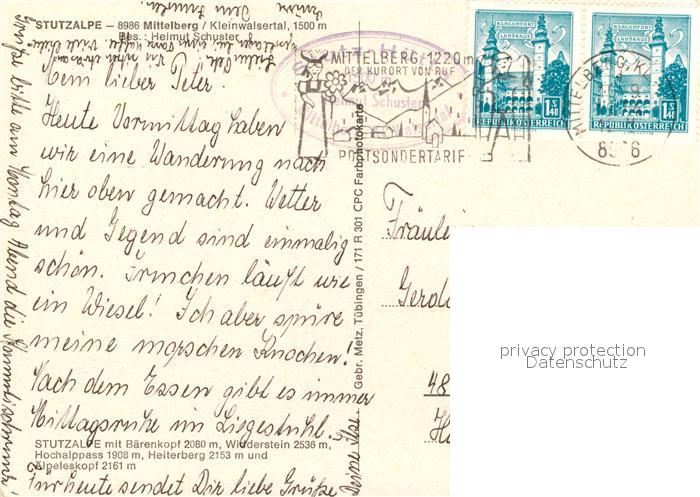 STUTZALPE – 8986 Mittelberg / Kleinwalsertal, 1500 m
Bes.: Helmut Schuster
Mein lieber Peter.
Heute Vormittag haben
wir eine Wanderung nach
hier oben gemacht. Wetter
und Gegend sind einmalig
schön. Irmchen läuft wie
ein Wiesel! Ich aber spüre
meine morschen Knochen!
Nach dem Essen gibt es immer
Mittagsruhe im Liegestuhl.
STUTZALPE mit Bärenkopf 2080 m, Widderstein 2536 m,
Hochalppass 1908 m, Heiterberg 2153 m und
Älpeleskopf 2161 m
Für heute sendet Dir liebe Grüße
Deine Ilse
bitte am Sonntag Abend die
Gebr. Metz, Tübingen / 171 R 301 CPC Farbphotokarte
MITTELBERG 1220 m
DER KURORT VON RUF
Helmut Schuster
POSTSONDERTARIF
MITTELBERG, KL
KLAGENFURT
LANDHAUS
1S 40
REPUBLIK ÖSTERREICH
KLAGENFURT
LANDHAUS
1S 40
REPUBLIK ÖSTERREICH
Fräulei
Gerda
48
privacy protection
Datenschutz